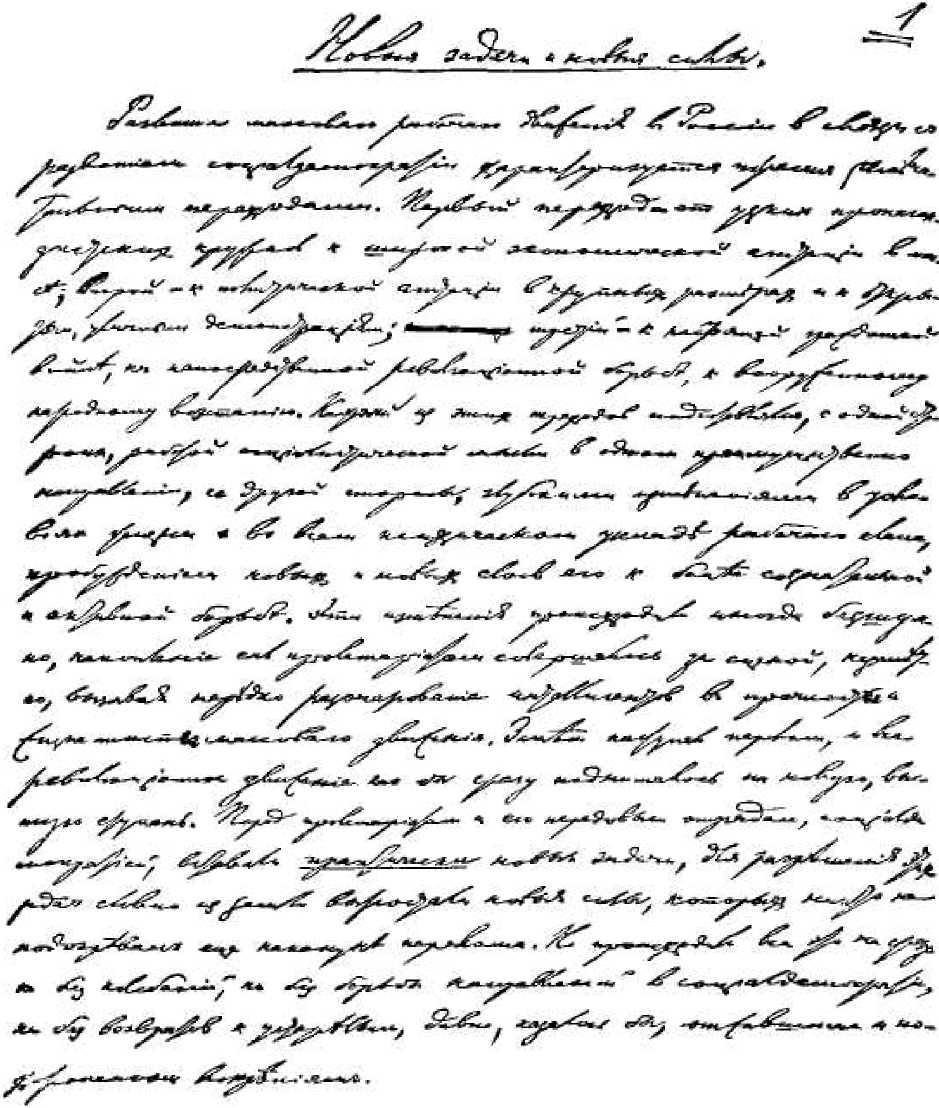 1
Новыя задачи и новыя силы.
Развитие массоваго рабочаго движенія в Россіи в связи с
развитіем социалдемократіи характеризуется тремя замеча-
тельными переходами. Первый переход – от узких пропаган-
дистских кружков к широкой экономической агитаціи в мас-
сѣ; второй – к политической агитаціи в крупных размѣрах и к откры-
тым, уличным демонстраціям; третій – к настоящей гражданской
войнѣ, к непосредственной революціонной борьбѣ, к вооруженному
народному возстанию. Каждый из этих переходов подготовлялся, с одной сто-
роны, работой социалистической мысли в одном преимущественно
направленіи, с другой стороны, глубокими измѣненіями в усло-
віях жизни и во всем психическом укладѣ рабочаго класса,
пробужденіем новых и новых слоев его к болѣе сознательной
и активной борьбѣ. Эти измѣненія происходили иногда безшум-
но, накопленіе сил пролетаріатом совершалось за сценой, незамѣт-
но, вызывая нерѣдко разочарованіе интеллигентов в прочности и
жизненности массоваго движенія. Затѣм наступал перелом, и все
революціонное движеніе как бы сразу поднималось на новую, выс-
шую ступень. Перед пролетаріатом и его передовым отрядом, социалде-
мократіей, вставали практически новыя задачи, для разрѣшенія этих
задач словно из земли выростали новыя силы, которых никто не
подозрѣвал еще накануне перелома. Но происходило все это не сразу,
не без колебаній, не без борьбы направленій в социалдемократіи,
не без возвратов к устарѣлым, давно, казалось бы, отжившим и по-
хороненным воззрѣніям.